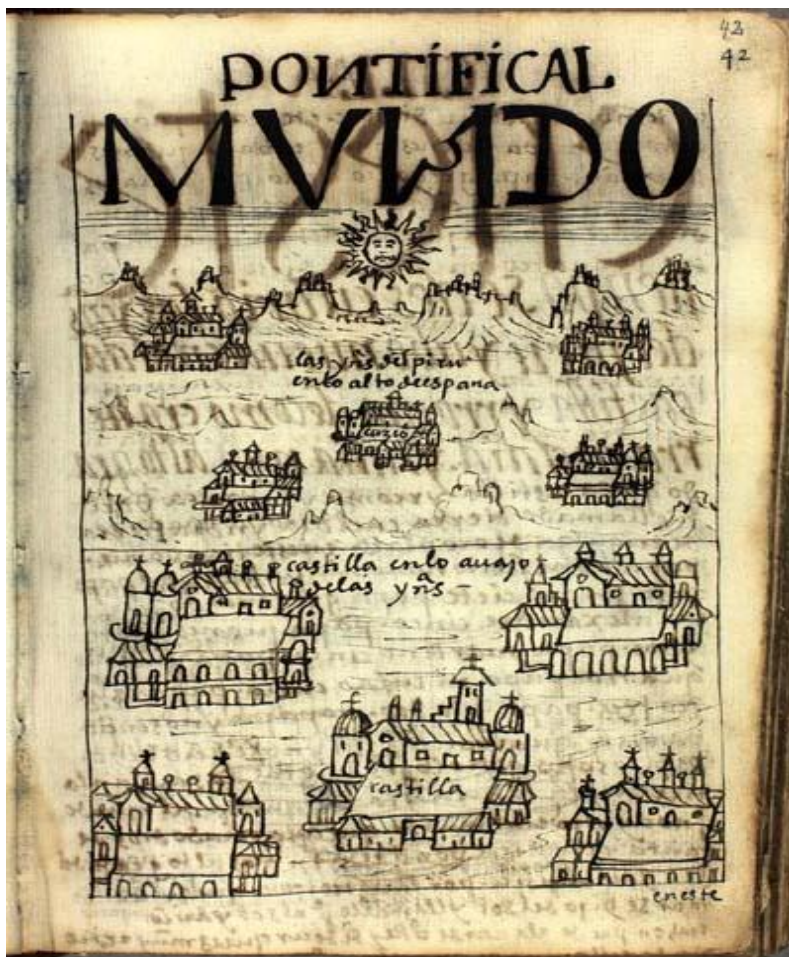 42
42
PONTIFICAL
MVNDO
las yñs del piru
en lo alto de espana
cuzco
castilla en lo auajo
de las yñas
castilla
en este